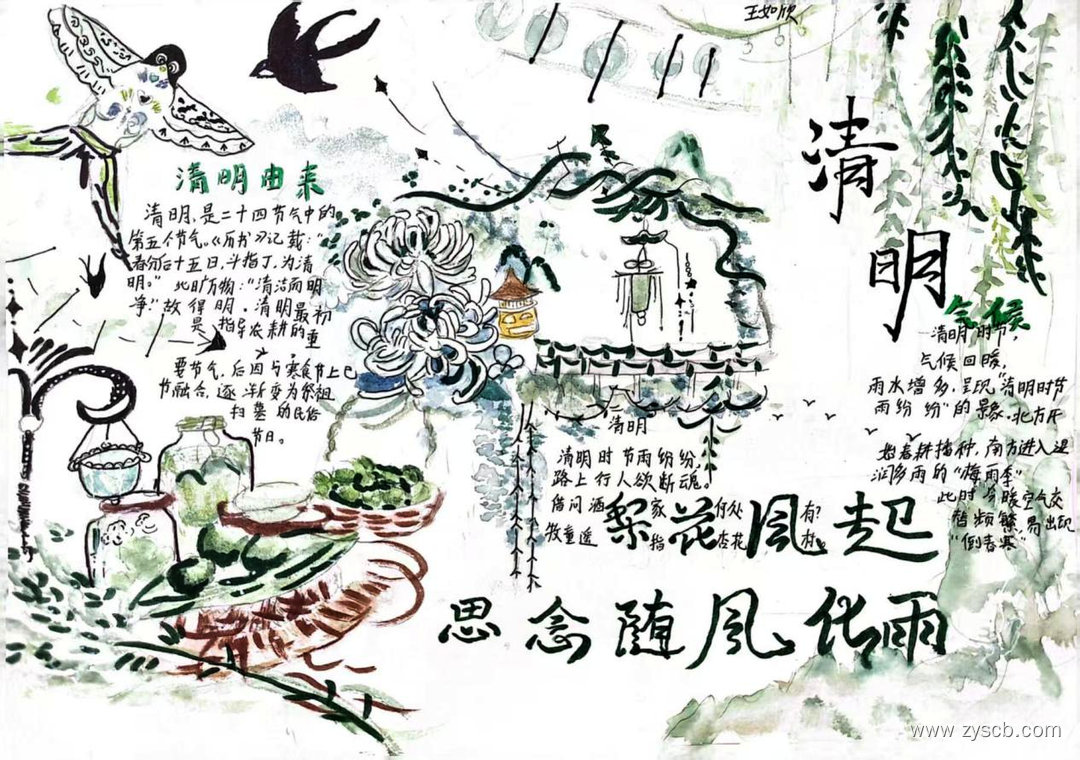 王如欣
清明
清明由来
清明，是二十四节气中的
第五个节气。《历书》记载："
春分后十五日，斗指丁，为清
明。" 此时万物："清洁而明
净。"故得明。清明最初
是指导农耕的重
要节气，后因与寒食节上巳
节融合，逐渐变为祭祖
扫墓的民俗
节日。
清明
清明时节雨纷纷，
路上行人欲断魂。
借问酒家何处有？
牧童遥指杏花村。
气候
清明时节，
气候回暖，
雨水增多，呈现"清明时节
雨纷纷"的景象。北方开
始春耕播种，南方进入湿
润多雨的"梅雨季"
此时冷暖空气交
替频繁易出现
"倒春寒"
梨花風起
思念随风化雨
www.zyscb.com